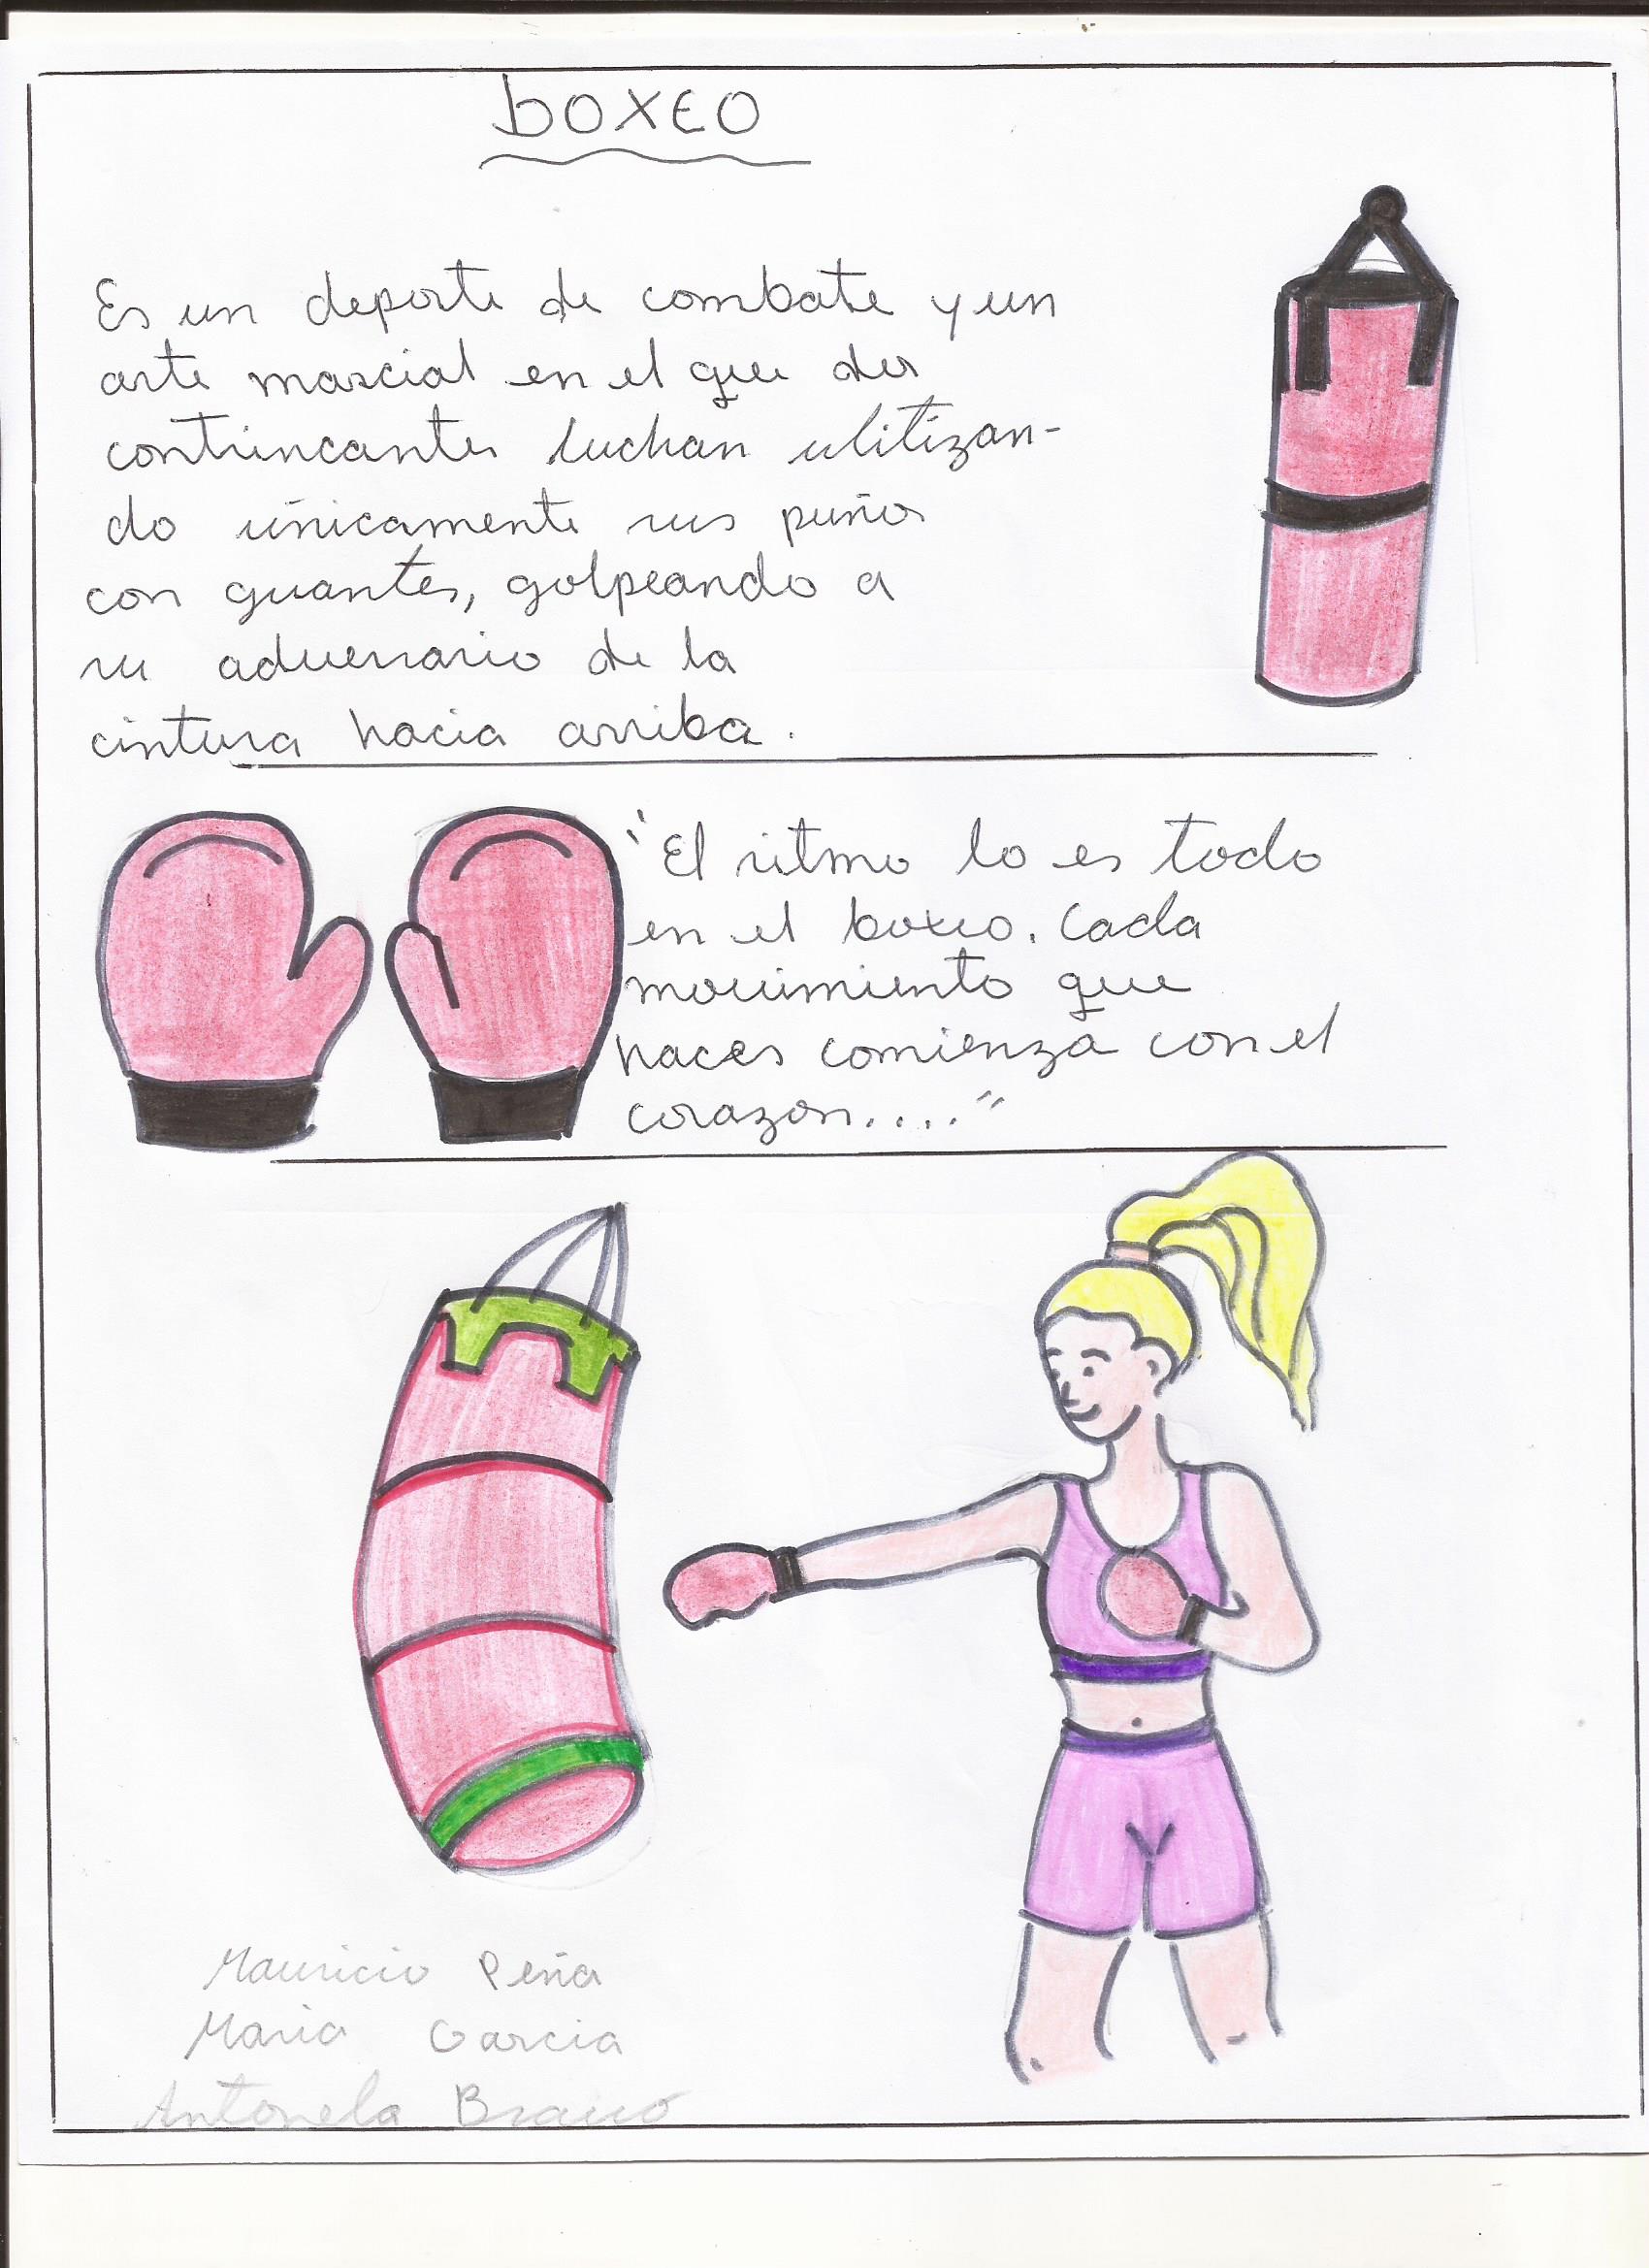 BOXEO
Es un deporte de combate y un
arte marcial en el que dos
contrincantes luchan ulitizan-
do únicamente sus puños
con guantes, golpeando a
su adversario de la
cintura hacia arriba.
"El ritmo lo es todo
en el boxeo. Cada
movimiento que
haces comienza con el
corazon...."
Mauricio Peña
Maria Garcia
Antonela Bravo